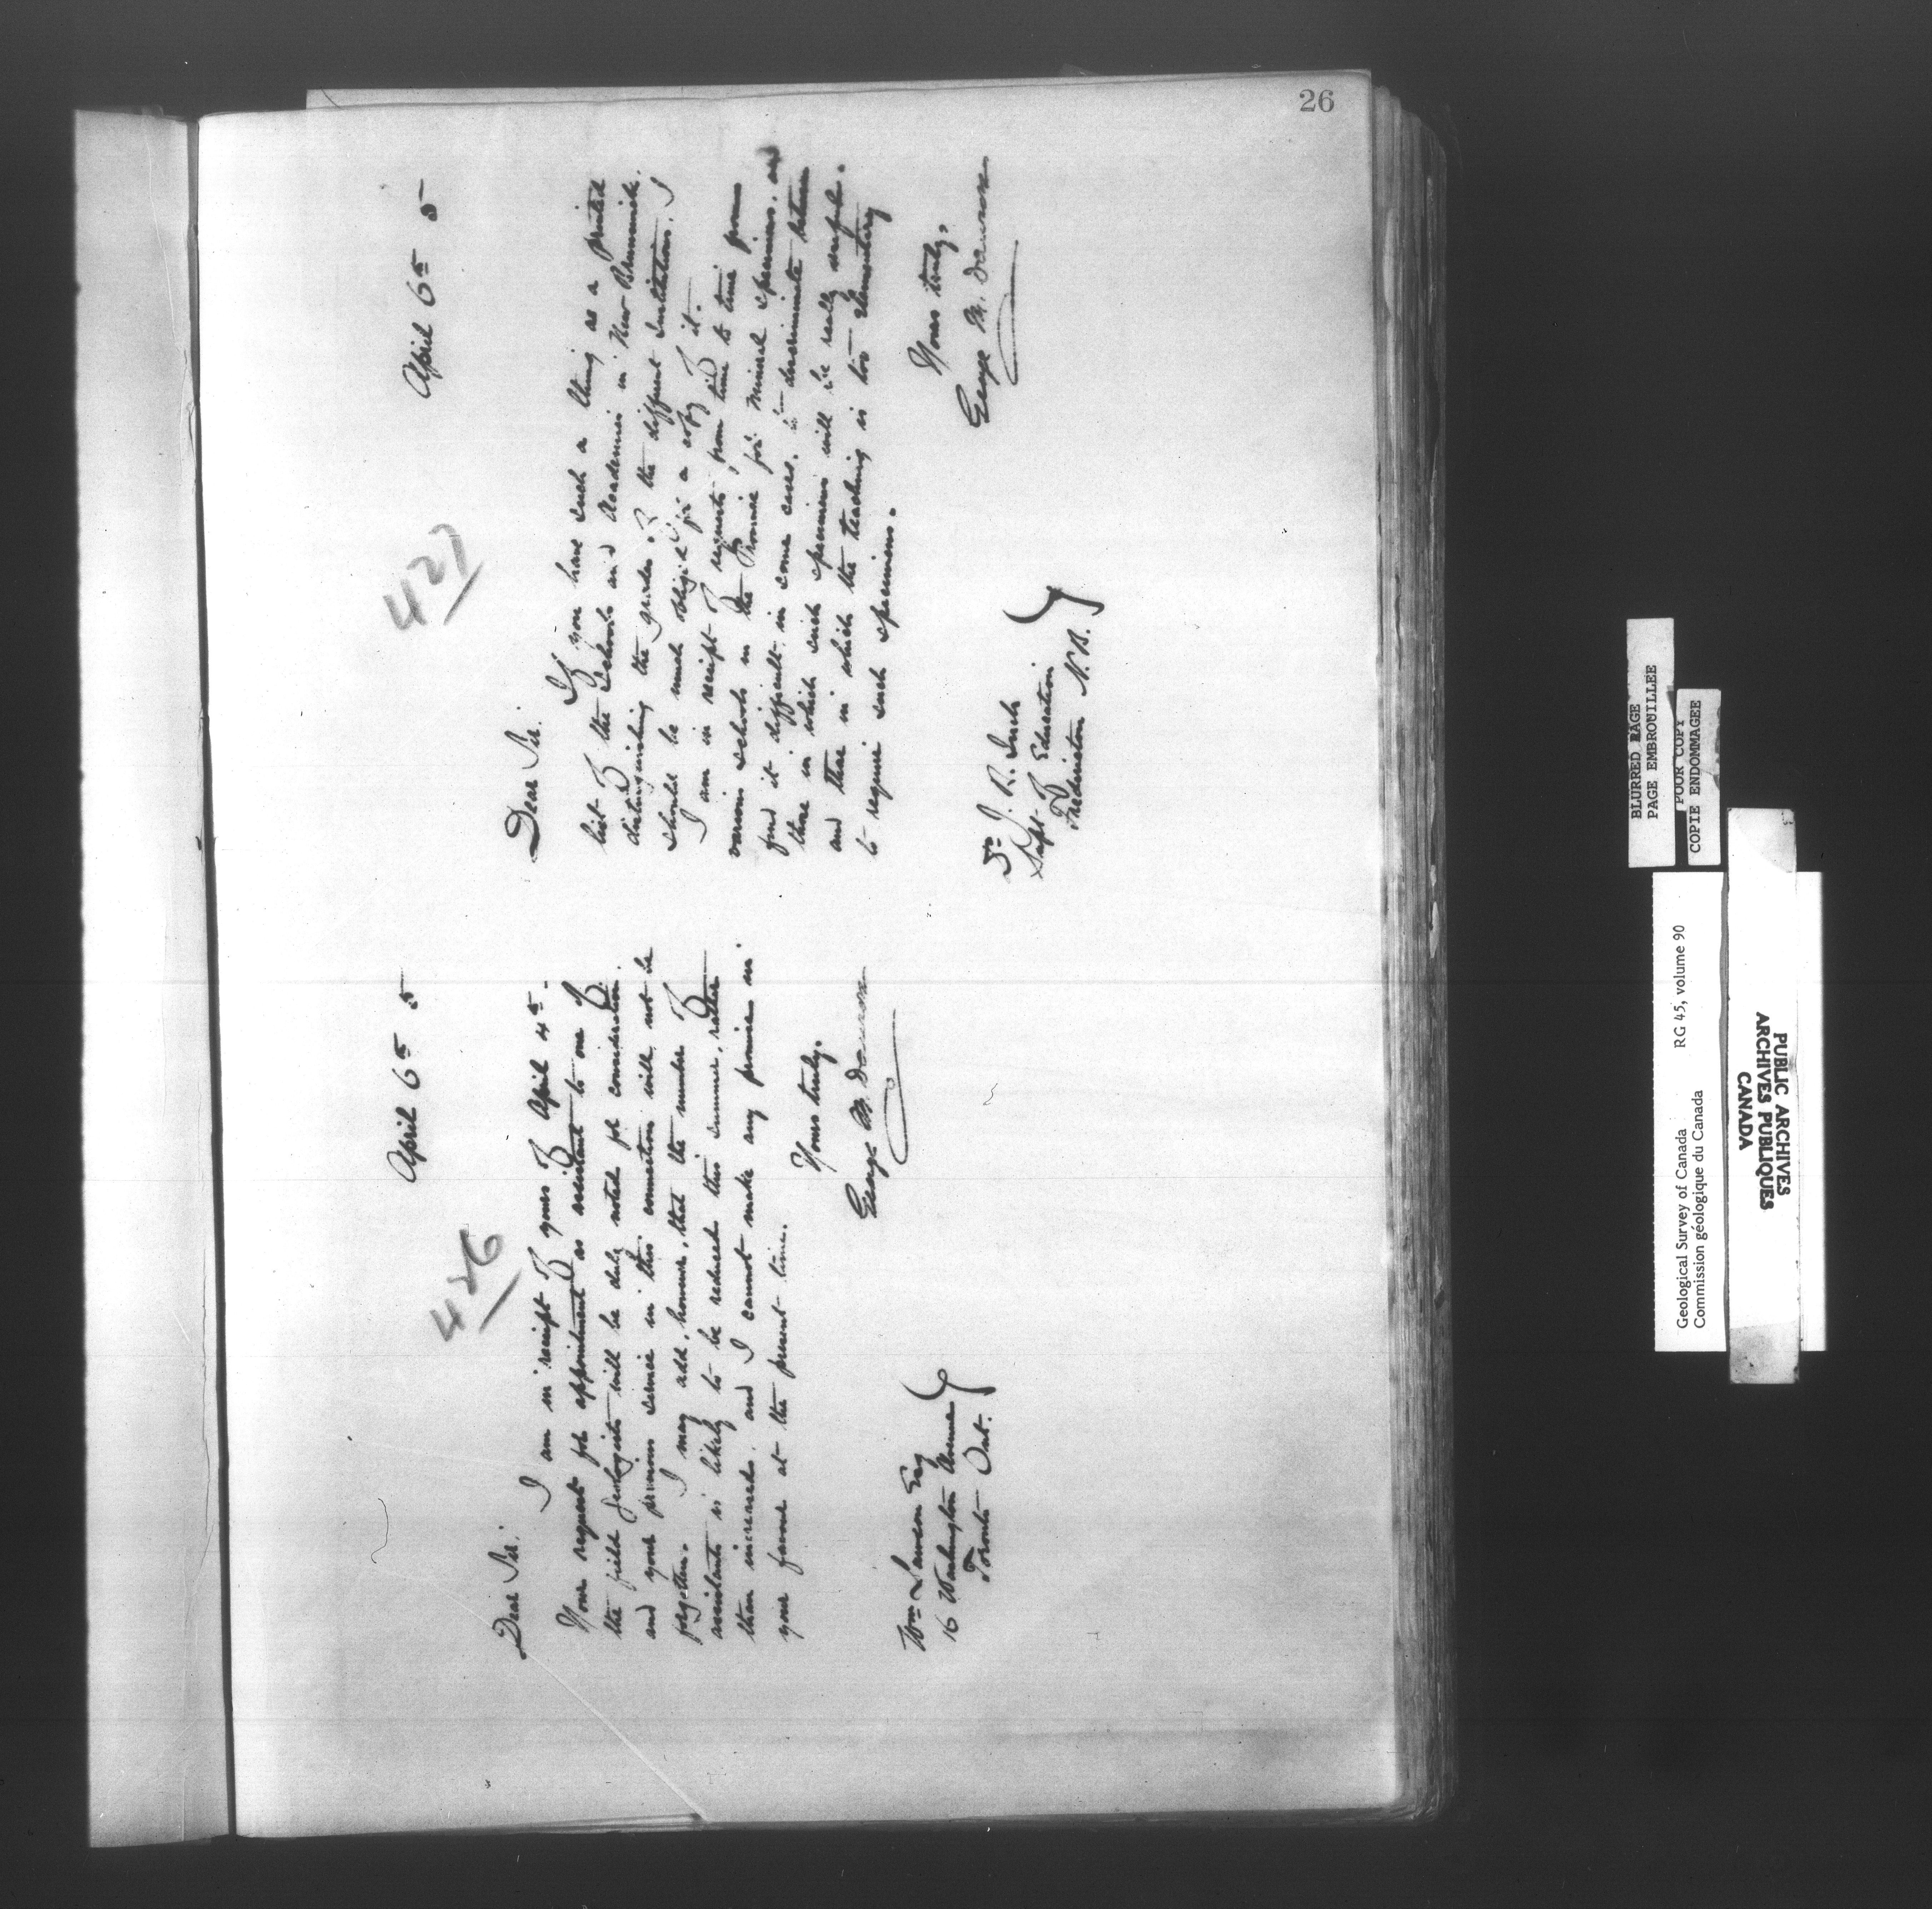 26
426
April 6th 5
Dear Sir:
I am in receipt of yours of April 4th.
Your request for appointment as assistant to one of
the field geologists will be duly noted for consideration.
and your previous service in this connection will not be
forgotten. I may add, however, that the number of
assistants is likely to be reduced this summer, rather
than increased, and I cannot make any promise in
your favour at the present time.
Yours truly,
George M. Dawson
Wm Lawson Esq
16 Washington Avenue
Toronto Ont.
427
April 6th 5
Dear Sir:
If you have such a thing as a printed
list of the Schools and Academies in New Brunswick,
distinguishing the grades of the different Institutions, I
should be much obliged for a copy of it.
I am in receipt of requests from time to time from
various schools in the Province for mineral specimens, and
find it difficult in some cases, to discriminate between
those in which such specimens will be really useful.
and those in which the teaching is too elementary
to require such specimens.
Yours truly,
George M. Dawson
J. R. Inch
Supt. of Education
Fredericton N.B.
BLURRED PAGE
PAGE EMBROUILLEE
POUR COPY
COPIE ENDOMMAGEE
Geological Survey of Canada RG 45, volume 90
Commission géologique du Canada
PUBLIC ARCHIVES
ARCHIVES PUBLIQUES
CANADA